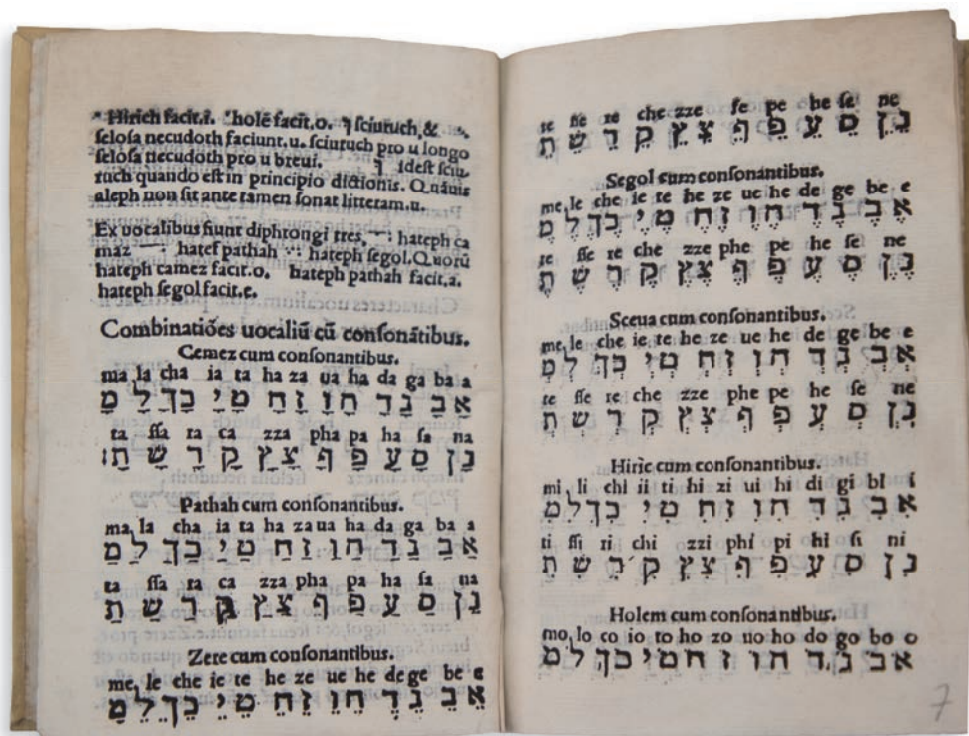 Hirich facit.i. holē facit.o. ſciuruch, &
ſeloſa necudoth faciunt.u. ſciuruch pro u longo
ſeloſa necudoth pro u breui. ideſt ſciu-
ruch quando eſt in principio dictionis. Quāuis
aleph non ſit ante tamen ſonat litteram.u.
Ex uocalibus fiunt diphtongi tres, hateph ca
maz hatef pathah hateph ſegol. Quorū
hateph camez facit.o. hateph pathah facit.a.
hateph ſegol facit.e.
Combinatiões uocaliū cū conſonātibus.
Cemez cum conſonantibus.
ma la cha ia ta ha za ua ha da ga ba a
אָ בָ גָ דָ הָ וָ זָ חָ טָ יָ כָ ךָ לָ מָ
ta ſſa ra ca zza pha pa ha ſa na
נָ ן סָ עָ פָ ףָ צָ ץָ קָ רָ שָ תָ
Pathah cum conſonantibus.
ma la cha ia ta ha za ua ha da ga ba a
אַ בַ גַ דַ הַ וַ זַ חַ טַ יַ כַ ךַ לַ מַ
ta ſſa ra ca zza pha pa ha ſa na
נַ ן סַ עַ פַ ףַ צַ ץַ קַ רַ שַ תַ
Zere cum conſonantibus.
me le che ie te he ze ue he de ge be e
אֵ בֵ גֵ דֵ הֵ וֵ זֵ חֵ טֵ יֵ כֵ ךֵ לֵ מֵ
te ſſe re che zze fe pe he ſe ne
נֵ ן סֵ עֵ פֵ ףֵ צֵ ץֵ קֵ רֵ שֵ תֵ
Segol cum conſonantibus.
me le che ie te he ze ue he de ge be e
אֶ בֶ גֶ דֶ הֶ וֶ זֶ חֶ טֶ יֶ כֶ ךֶ לֶ מֶ
te ſſe re che zze phe pe he ſe ne
נֶ ן סֶ עֶ פֶ ףֶ צֶ ץֶ קֶ רֶ שֶ תֶ
Sceua cum conſonantibus.
me le che ie te he ze ue he de ge be e
אְ בְ גְ דְ הְ וְ זְ חְ טְ יְ כְ ךְ לְ מְ
te ſſe re che zze phe pe he ſe ne
נְ ן סְ עְ פְ ףְ צְ ץְ קְ רְ שְ תְ
Hiric cum conſonantibus.
mi li chi ii ti hi zi ui hi di gi bi i
אִ בִ גִ דִ הִ וִ זִ חִ טִ יִ כִ ךִ לִ מִ
ti ſſi ri chi zzi phi pi hi ſi ni
נִ ן סִ עִ פִ ףִ צִ ץִ קִ רִ שִ תִ
Holem cum conſonantibus.
mo lo co io to ho zo uo ho do go bo o
אֹ בֹ גֹ דֹ הֹ וֹ זֹ חֹ טֹ יֹ כֹ ךֹ לֹ מֹ
7